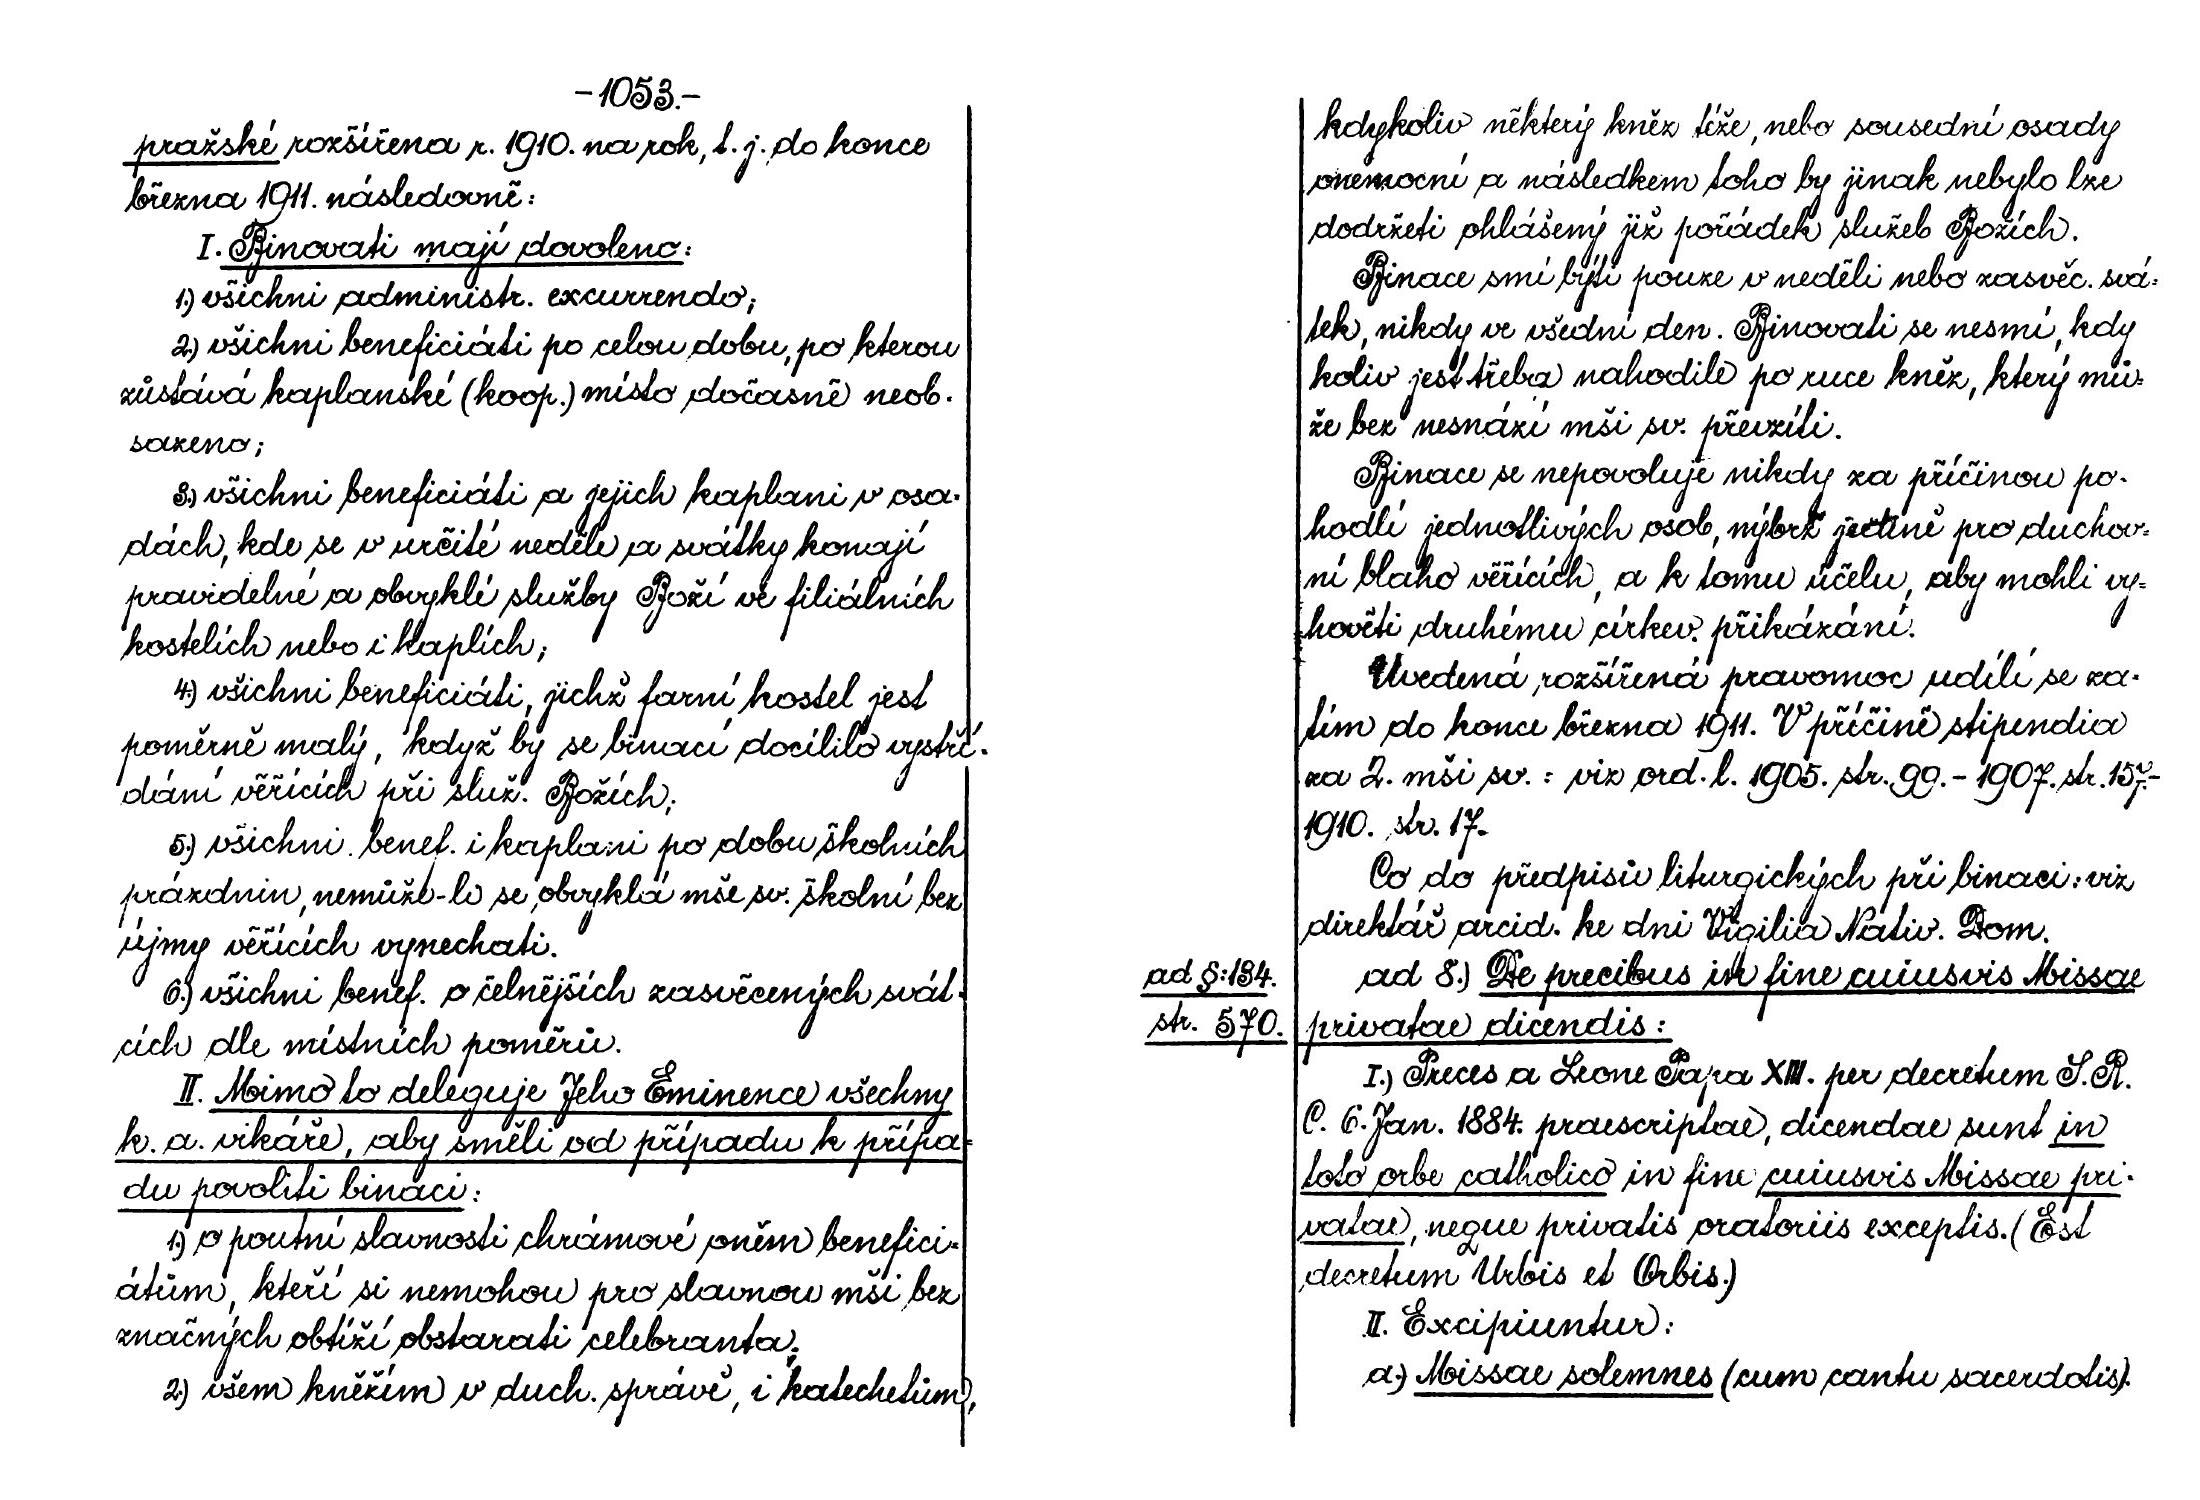 -1053.-
pražské rozšířena r. 1910. na rok, t. j. do konce
března 1911. následovně:
I. Binovati mají dovoleno:
1.) všichni administr. excurrendo;
2.) všichni beneficiáti po celou dobu, po kterou
zůstává kaplanské (koop.) místo dočasně neob-
sazeno;
3.) všichni beneficiáti a jejich kaplani v osa-
dách, kde se v určité neděle a svátky konají
pravidelné a obvyklé služby Boží ve filiálních
kostelích nebo i kaplích;
4.) všichni beneficiáti, jichž farní kostel jest
poměrně malý, když by se binací docílilo vystří-
dání věřících při služ. Božích;
5.) všichni benef. i kaplani po dobu školních
prázdnin, nemůže-li se obvyklá mše sv. školní bez
újmy věřících vynechati.
6.) všichni benef. o čelnějších zasvěcených svát-
cích dle místních poměrů.
II. Mimo to deleguje Jeho Eminence všechny
k. a. vikáře, aby směli od případu k přípa-
du povoliti binaci:
1.) o poutní slavnosti chrámové oněm benefici-
átům, kteří si nemohou pro slavnou mši bez
značných obtíží obstarati celebranta;
2.) všem kněžím v duch. správě, i katechetům,
kdykoliv některý kněz téže, nebo sousední osady
onemocní a následkem toho by jinak nebylo lze
dodržeti ohlášený již pořádek služeb Božích.
Binace smí býti pouze v neděli nebo zasvěc. svá-
tek, nikdy ve všední den. Binovati se nesmí, kdy
koliv jest třeba nahodile po ruce kněz, který mů-
že bez nesnází mši sv. převzíti.
Binace se nepovoluje nikdy za příčinou po-
hodlí jednotlivých osob, nýbrž jedině pro duchov-
ní blaho věřících, a k tomu účelu, aby mohli vy-
hověti druhému církev. přikázání.
Uvedená rozšířená pravomoc udílí se za-
tím do konce března 1911. V příčině stipendia
za 2. mši sv. : viz ord. l. 1905. str. 99. - 1907. str. 157.-
1910. str. 17.
Co do předpisův liturgických při binaci: viz
direktář arcid. ke dni Vigilia Nativ. Dom.
ad §:134.
str. 570.
ad 8.) De precibus in fine cuiusvis Missae
privatae dicendis:
I.) Preces a Leone Papa XIII. per decretum S. R.
C. 6. Jan. 1884. praescriptae, dicendae sunt in
toto orbe catholico in fine cuiusvis Missae pri-
vatae, neque privatis oratoriis exceptis. (Est
decretum Urbis et Orbis.)
II. Excipiuntur:
a.) Missae solemnes (cum cantu sacerdotis).